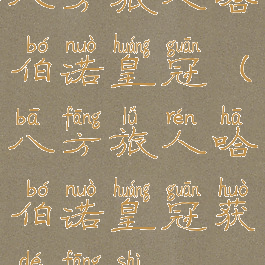 八方旅人哈
bó nuò huáng guān
伯诺皇冠（
bā fāng lǚ rén hā
八方旅人哈
bó nuò huáng guān huò
伯诺皇冠获
dé fāng shì